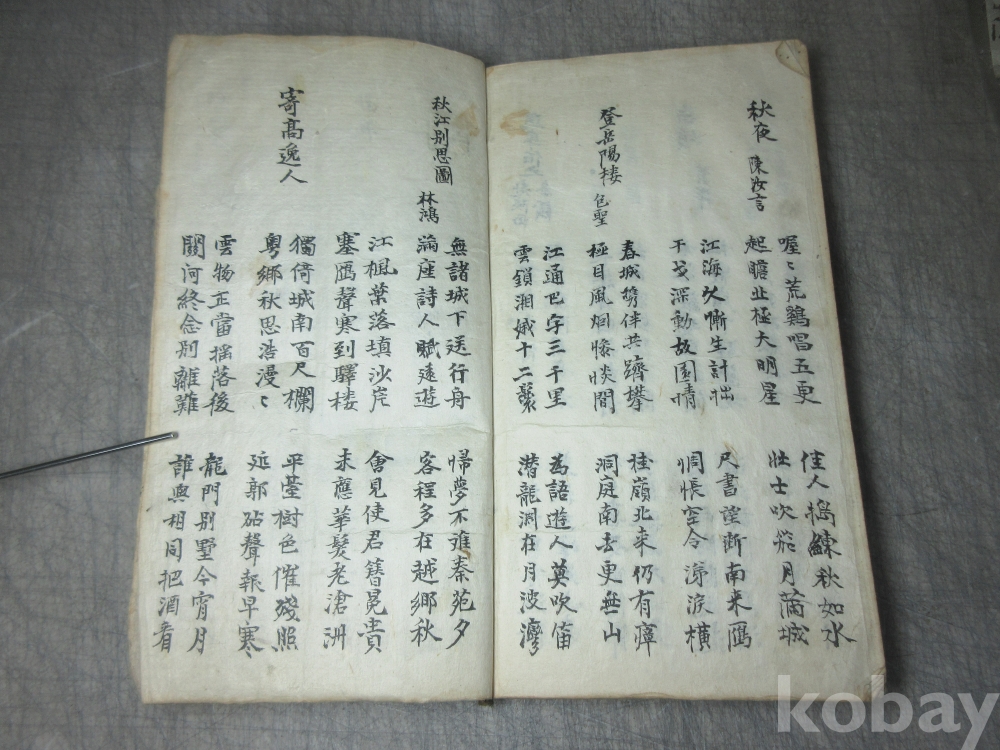 秋夜 陳汝言
喔〻荒鷄唱五更
起瞻北極大明星
佳人搗練秋如水
壯士吹笳月滿城
江海久慚生計拙
干戈深動故園情
尺書望断南来鴈
惆悵空令涕淚橫
登岳陽楼 包聖
春城携伴共躋攀
極目風烟惨惔間
桂嶺北来仍有瘴
洞庭南去更無山
江通巴字三千里
雲鎖湘娥十二鬟
為語遊人莫吹笛
潜龍淵在月波灣
秋江别思圖 林鴻
無諸城下送行舟
滿座詩人賦遠遊
帰夢不離秦苑夕
客程多在越鄉秋
江楓葉落填沙岸
塞鴈聲寒到驛楼
會見使君簪冕貴
未應華髮老滄洲
寄髙逸人
獨倚城南百尺欄
粤鄉秋思浩漫〻
平臺樹色催殘照
延郭砧聲報早寒
雲物正當揺落後
關河終念别離難
龍門别墅今宵月
誰與相同把酒看
kobay